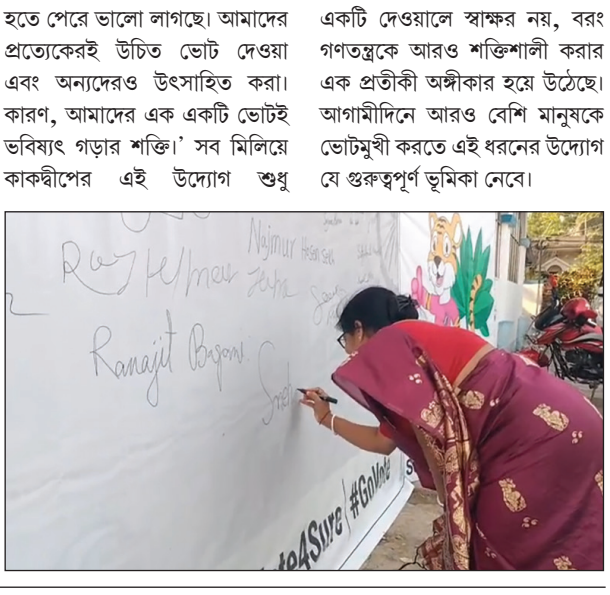 হতে পেরে ভালো লাগছে। আমাদের
প্রত্যেকেরই উচিত ভোট দেওয়া
এবং অন্যদেরও উৎসাহিত করা।
কারণ, আমাদের এক একটি ভোটই
ভবিষ্যৎ গড়ার শক্তি।’ সব মিলিয়ে
কাকদ্বীপের এই উদ্যোগ শুধু
একটি দেওয়ালে স্বাক্ষর নয়, বরং
গণতন্ত্রকে আরও শক্তিশালী করার
এক প্রতীকী অঙ্গীকার হয়ে উঠেছে।
আগামীদিনে আরও বেশি মানুষকে
ভোটমুখী করতে এই ধরনের উদ্যোগ
যে গুরুত্বপূর্ণ ভূমিকা নেবে।
Najmur Hosen
Ranajit
4Sure | #GoVote